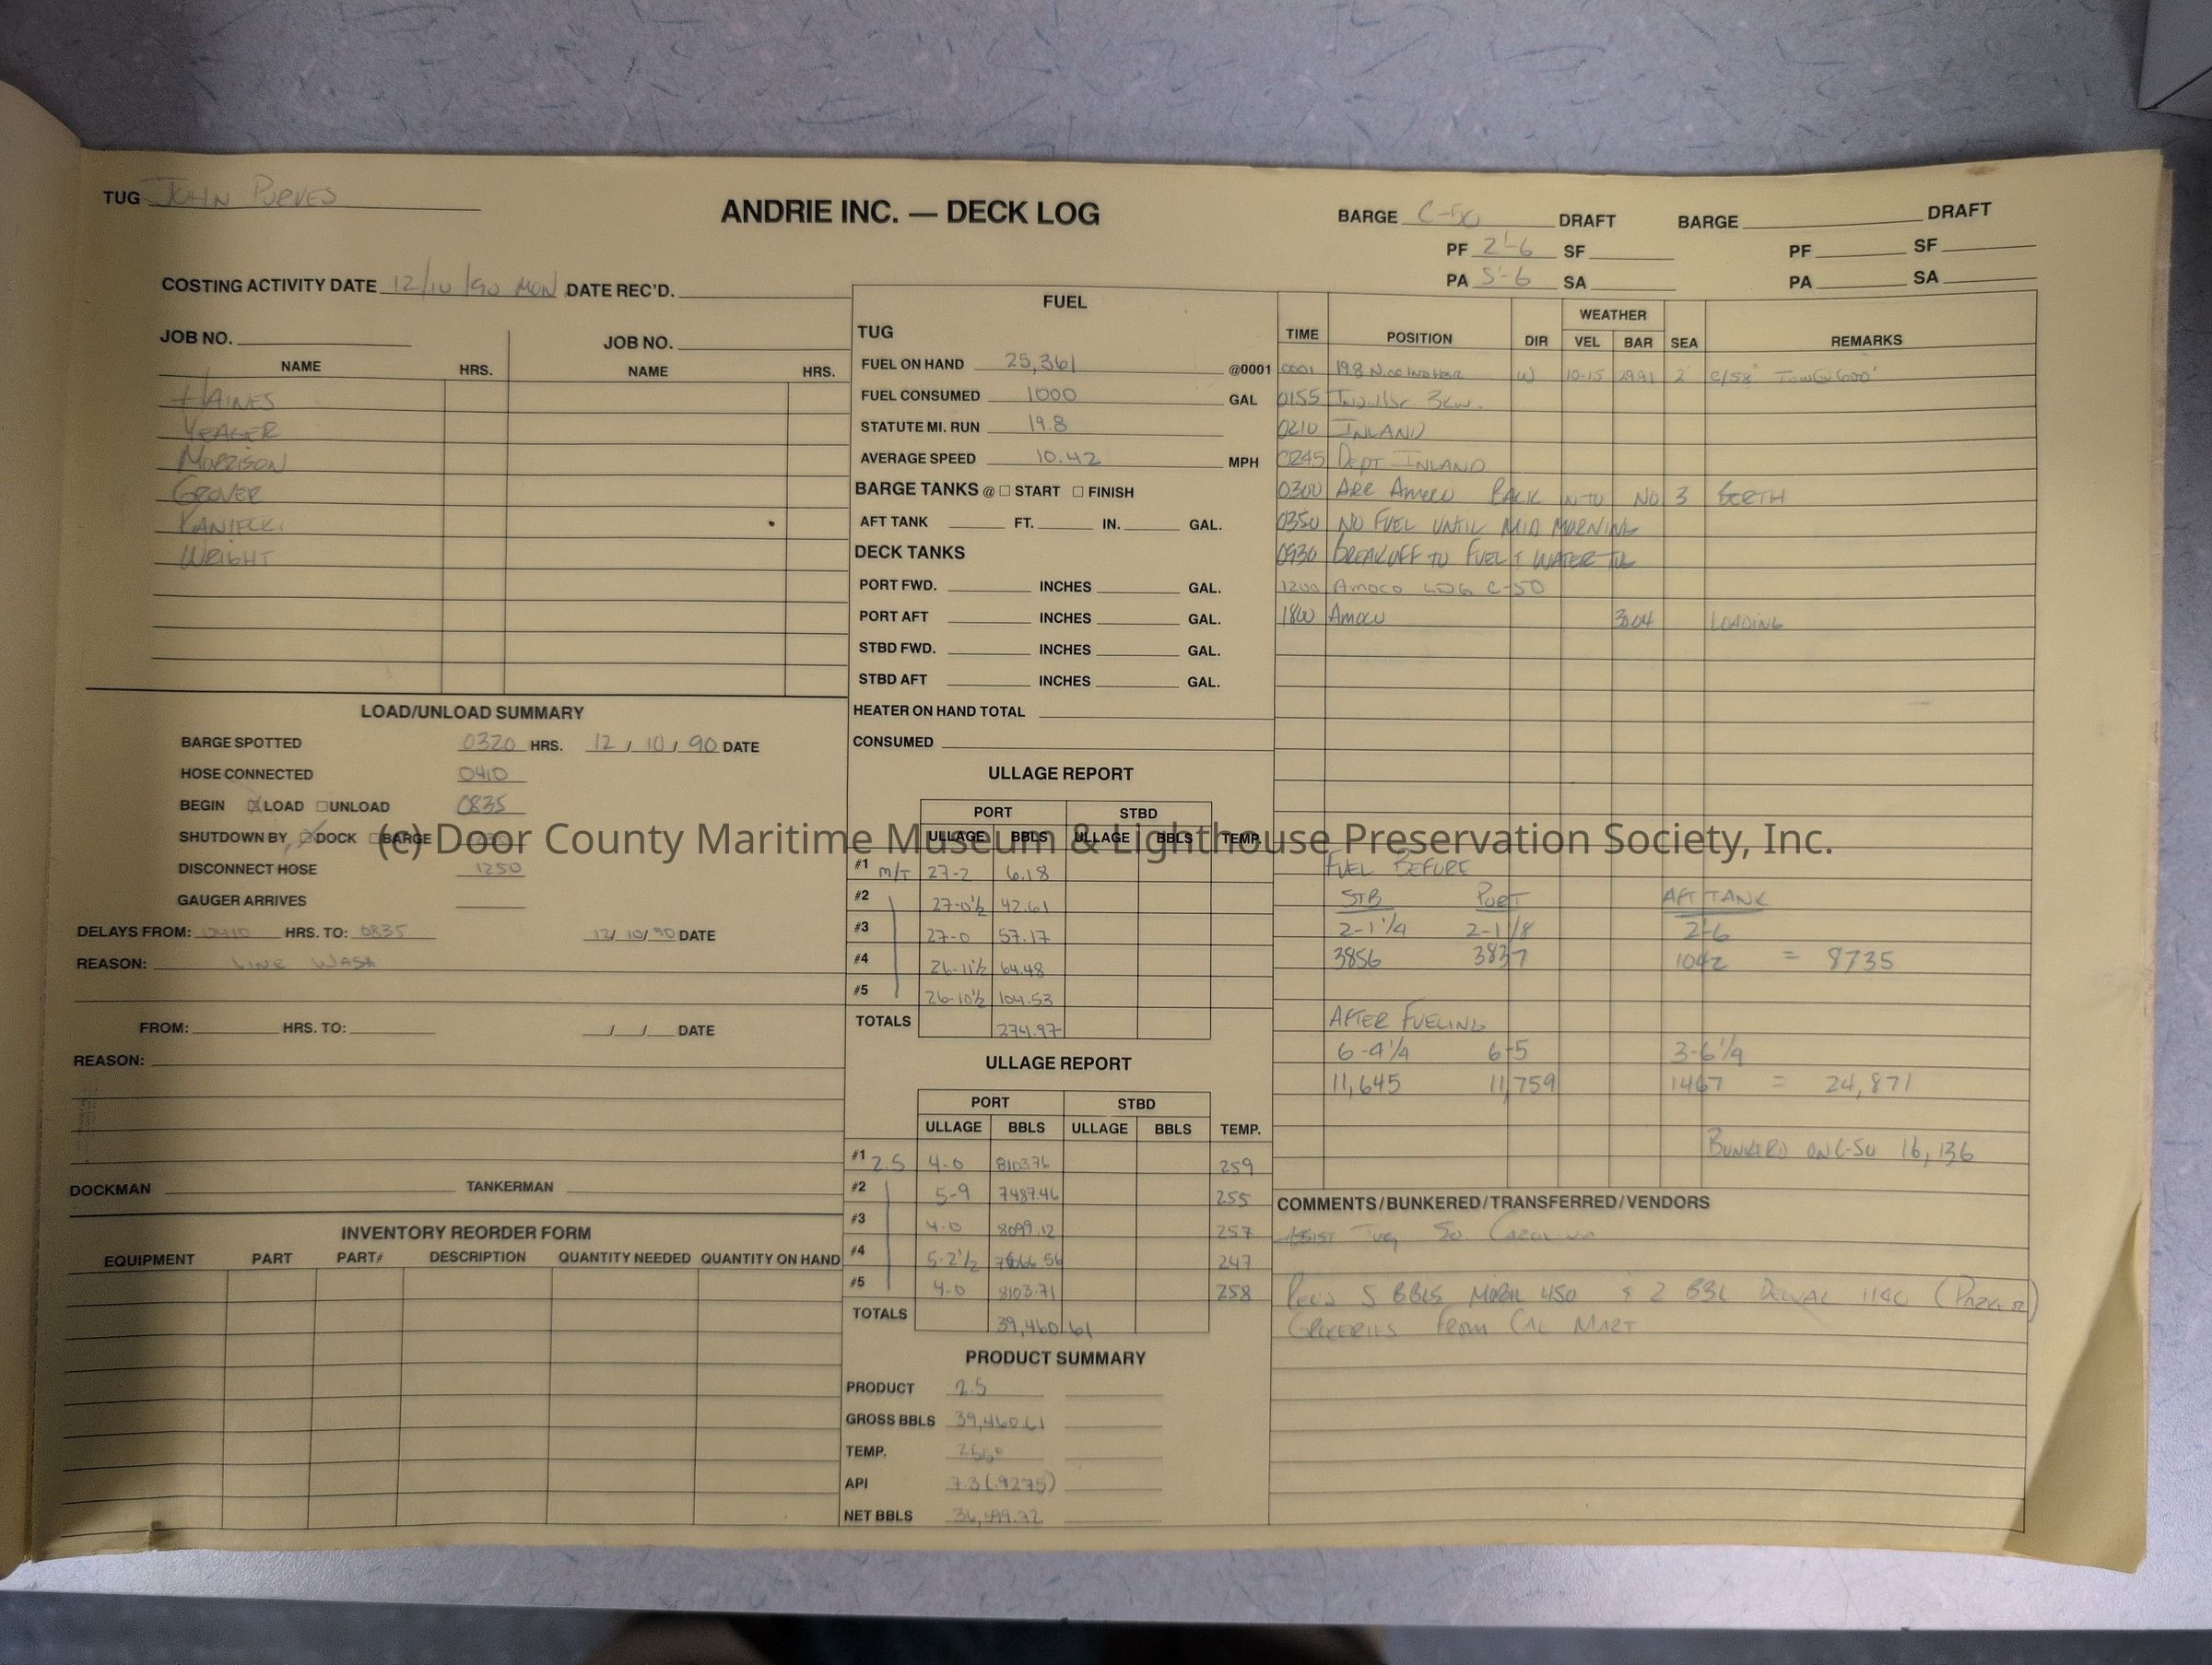 TUG JOHN PURVES
ANDRIE INC. — DECK LOG
BARGE C-50 DRAFT BARGE DRAFT
PF 2'-6 SF PF SF
PA 5'-6 SA PA SA
COSTING ACTIVITY DATE 12/10/90 MON DATE REC'D.
JOB NO. JOB NO.
NAME HRS. NAME HRS.
HAINES
YEAGER
MORRISON
GROVER
KANIECKI
WRIGHT
LOAD/UNLOAD SUMMARY
BARGE SPOTTED 0320 HRS. 12/10/90 DATE
HOSE CONNECTED 0410
BEGIN ☒ LOAD ☐ UNLOAD 0835
SHUTDOWN BY ☒ DOCK ☐ BARGE
DISCONNECT HOSE 1250
GAUGER ARRIVES
DELAYS FROM: 0410 HRS. TO: 0835 12/10/90 DATE
REASON: LINE WASH
FROM: HRS. TO: / / DATE
REASON:
DOCKMAN TANKERMAN
INVENTORY REORDER FORM
EQUIPMENT PART PART# DESCRIPTION QUANTITY NEEDED QUANTITY ON HAND
FUEL
TUG
FUEL ON HAND 25,361 @0001
FUEL CONSUMED 1000 GAL
STATUTE MI. RUN 19.8
AVERAGE SPEED 10.42 MPH
BARGE TANKS @ ☐ START ☐ FINISH
AFT TANK FT. IN. GAL.
DECK TANKS
PORT FWD. INCHES GAL.
PORT AFT INCHES GAL.
STBD FWD. INCHES GAL.
STBD AFT INCHES GAL.
HEATER ON HAND TOTAL
CONSUMED
ULLAGE REPORT
PORT STBD
ULLAGE BBLS ULLAGE BBLS TEMP.
#1 M/T 27-2 6.18
#2 27-0½ 42.61
#3 27-0 57.17
#4 26-11½ 64.48
#5 26-10½ 104.53
TOTALS 274.97
ULLAGE REPORT
PORT STBD
ULLAGE BBLS ULLAGE BBLS TEMP.
#1 2.5 4-0 8103.76 259
#2 5-9 7487.46 255
#3 4-0 8099.12 257
#4 5-2½ 7666.56 247
#5 4-0 8103.71 258
TOTALS 39,460.61
PRODUCT SUMMARY
PRODUCT 2.5
GROSS BBLS 39,460.61
TEMP.
API 7.3 (.9275)
NET BBLS
WEATHER
TIME POSITION DIR VEL BAR SEA REMARKS
0001 19.8 N.OO IND HBR W 10-15 2991 2' C/58° TOW@600'
0155 IND. Hbr Bkw.
0210 INLAND
0245 DEPT INLAND
0300 ARR AMOCO BACK INTO NO 3 BERTH
0350 NO FUEL UNTIL MID MORNING
0930 BREAKOFF TO FUEL & WATER TUG
1200 AMOCO LDG C-50
1800 AMOCO 3004 LOADING
FUEL BEFORE
STB PORT AFT TANK
2-1 1/4 2-1 1/8 2-6
3856 3837 1042 = 8735
AFTER FUELING
6-4 1/4 6-5 3-6 1/4
11,645 11,759 1467 = 24,871
BUNKERD ON C-50 16,136
COMMENTS/BUNKERED/TRANSFERRED/VENDORS
ASSIST TUG SO. CAROLINA
REC'D 5 BBLS MOBIL 450 & 2 BBL 1140 (PARKER)
GROCERIES FROM CAL MART
(c) Door County Maritime Museum & Lighthouse Preservation Society, Inc.